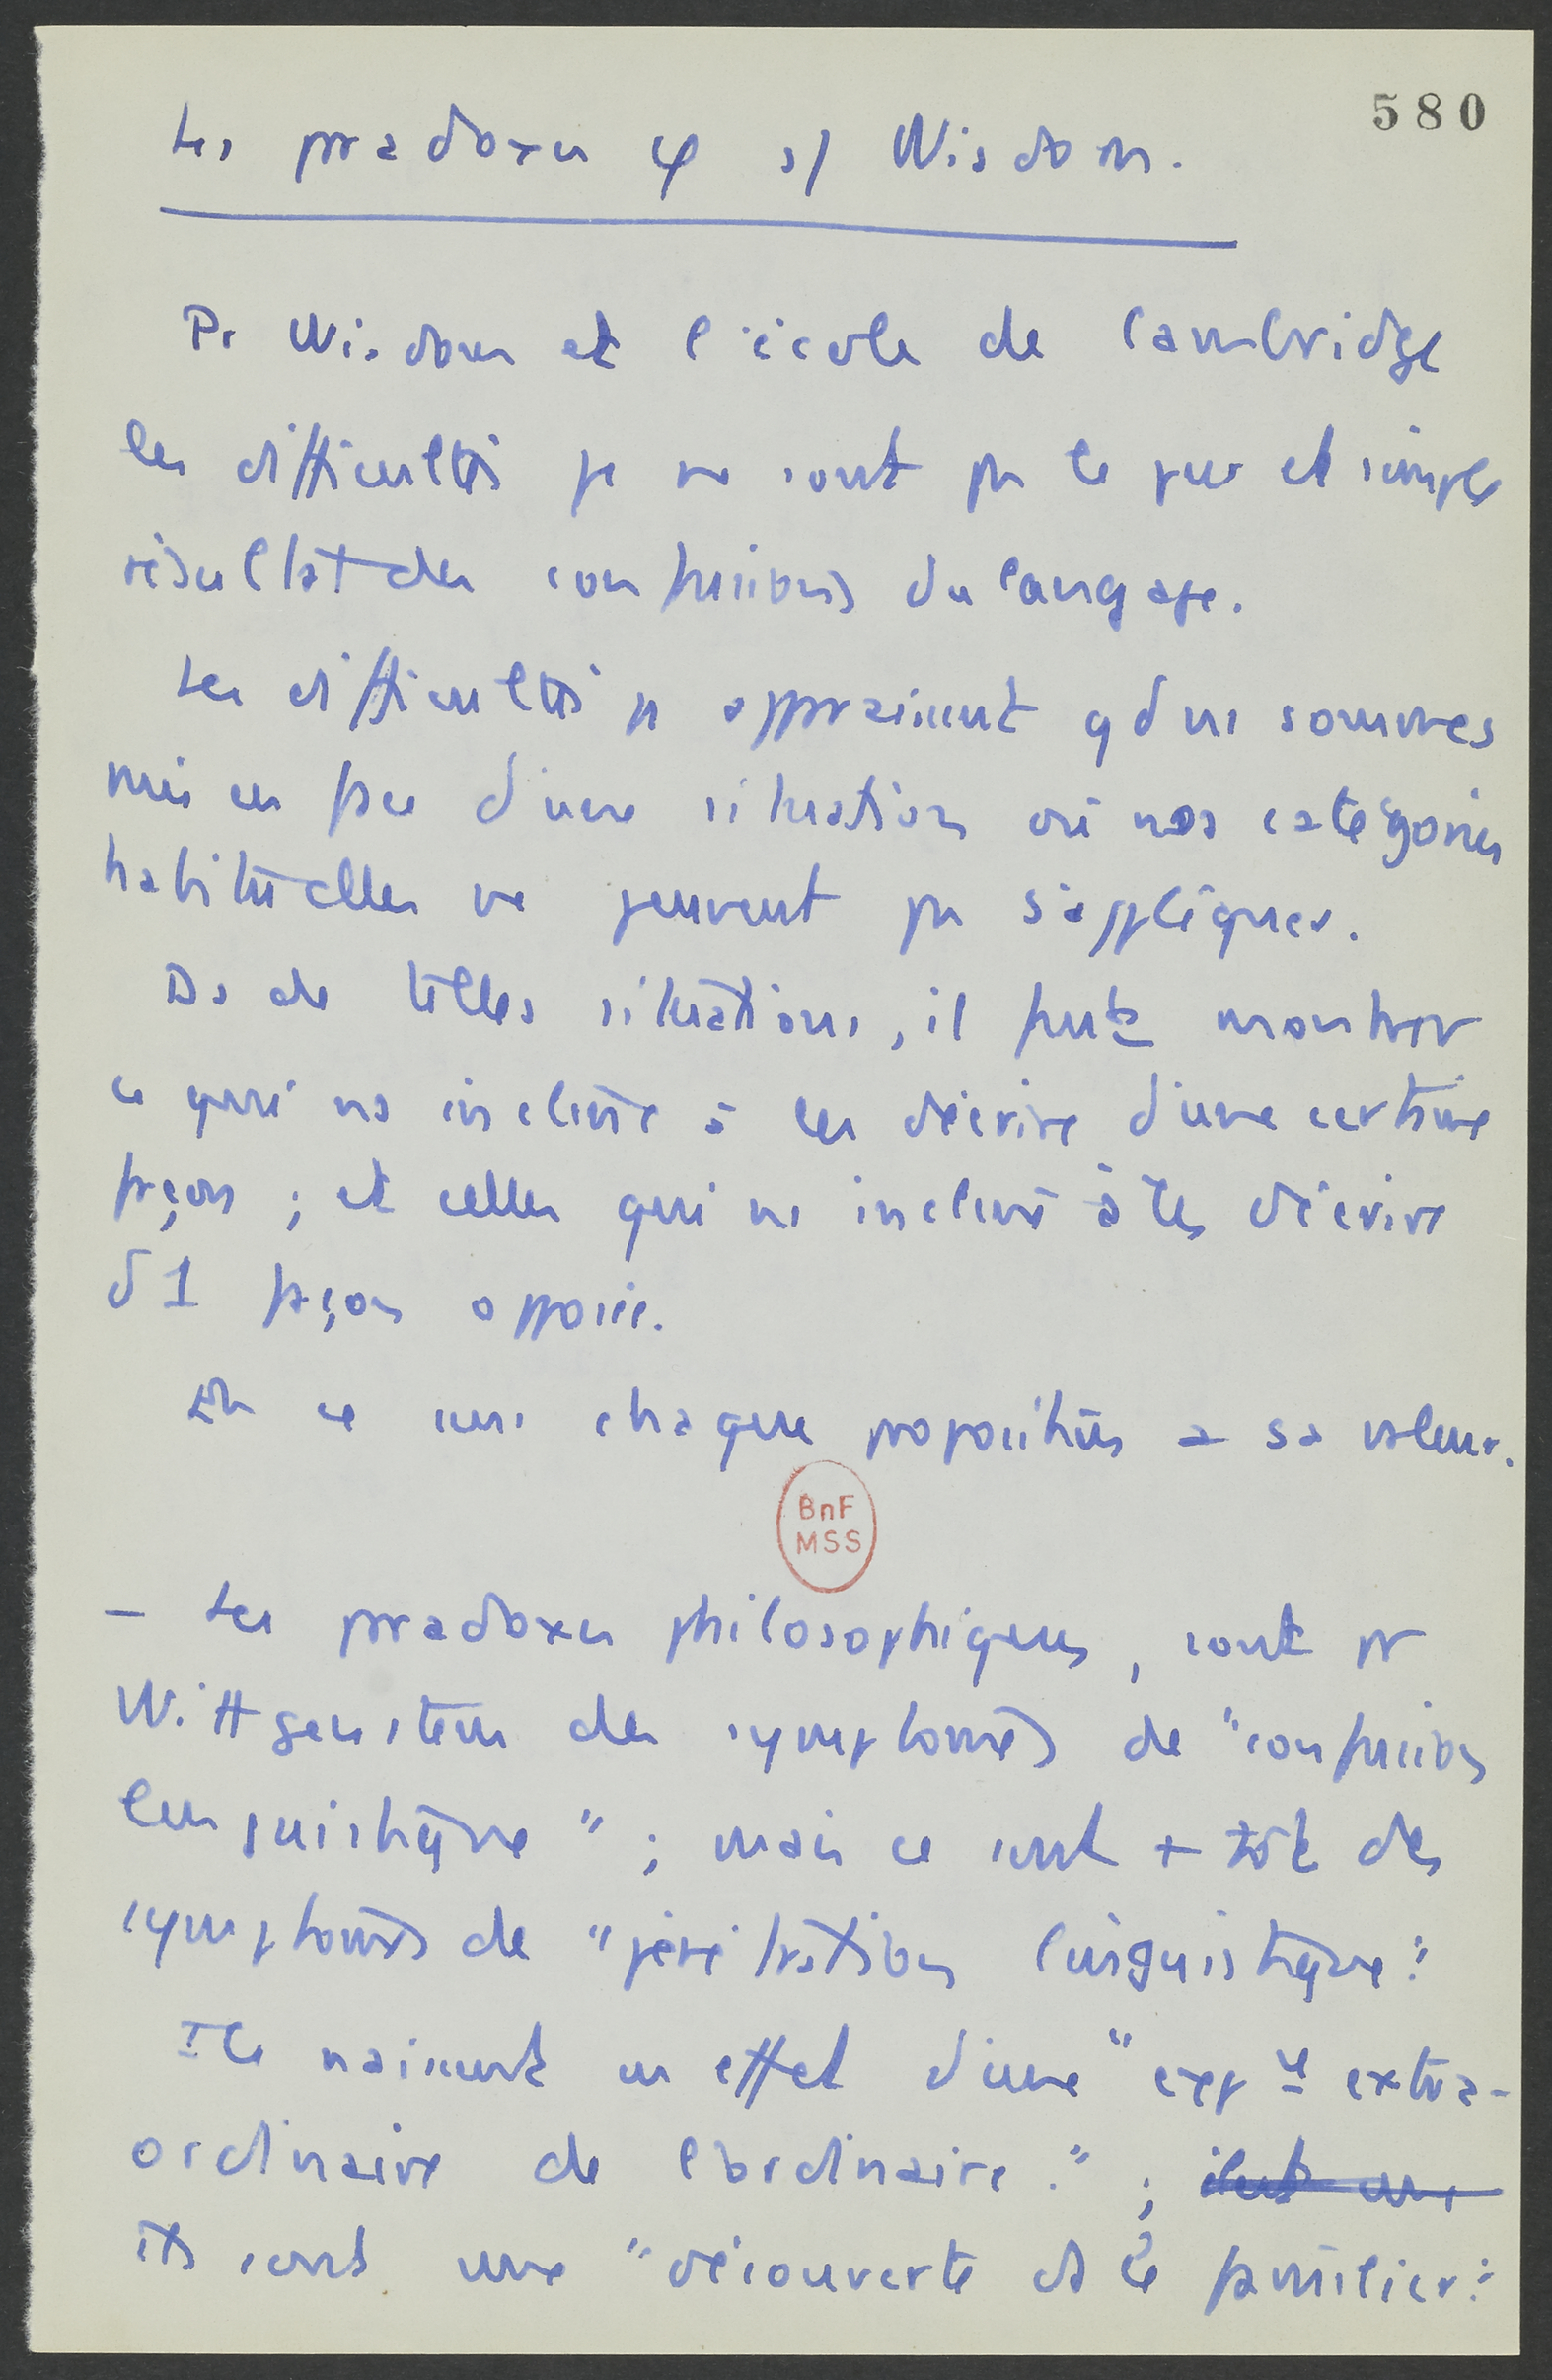 580
Les paradoxes φ s/ Wisdom.
Pr Wisdom et l'école de Cambridge
les difficultés φ ne sont pas le pur et simple
résultat des confusions du langage.
Les difficultés φ apparaissent qd ns sommes
mis en face d'une situation où nos catégories
habituelles ne peuvent pas s'appliquer.
Ds de telles situations, il faut montrer
ce qui ns incline à les décrire d'une certaine
façon ; et celles qui ns incline à les décrire
d'1 façon opposée.
En ce sens chaque proposition a sa valeur.
BnF
MSS
– Les paradoxes philosophiques, sont pr
Wittgenstein des symptomes de "confusion
linguistique" ; mais ce sont + tôt des
symptomes de "pénétration linguistique".
Ils naissent en effet d'une "expce extra-
ordinaire de l'ordinaire." ;
ils sont une "découverte ds le familier".